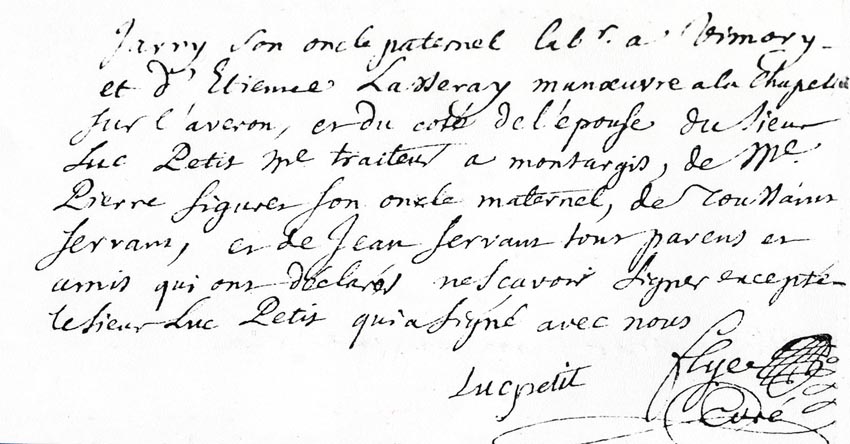 Jarry son oncle paternel labr. a Vimory
et d'Etienne Lasseray manœuvre a la Chapelle
sur l'averon, et du coté de l'épouse du sieur
Luc Petit Me traiteur a montargis, de Me
Pierre figuret son oncle maternel, de Toussaint
Servant, et de Jean Servant tous parens et
amis qui ont déclarés ne sçavoir signer excepté
le sieur Luc Petit qui a signé avec nous
Luc petit
flye
Curé